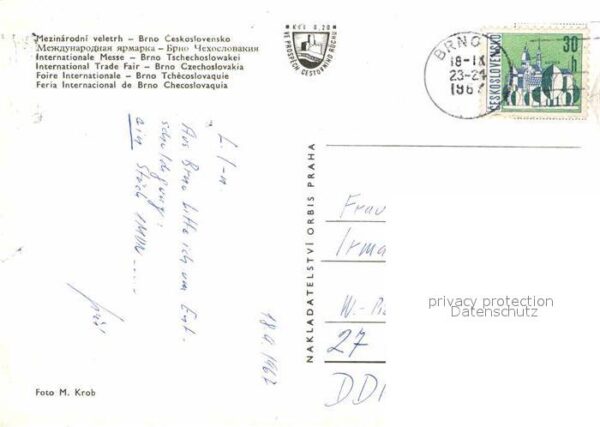 Mezinárodní veletrh – Brno Československo
Международная ярмарка – Брно Чехословакия
Internationale Messe – Brno Tschechoslowakei
International Trade Fair – Brno Czechoslovakia
Foire Internationale – Brno Tchécoslovaquie
Feria Internacional de Brno Checoslovaquia
Kčs 0,20
VE PROSPĚCH CESTOVNÍHO RUCHU
BRNO
18-IX
23-24
1967
30 h
ČESKOSLOVENSKO
L. I–n.
Aus Brno bitte ich um Ent-
schuldigung:
ein Stück
18 9 1967
NAKLADATELSTVÍ ORBIS PRAHA
Frau
Irma
27
DD
privacy protection
Datenschutz
Foto M. Krob